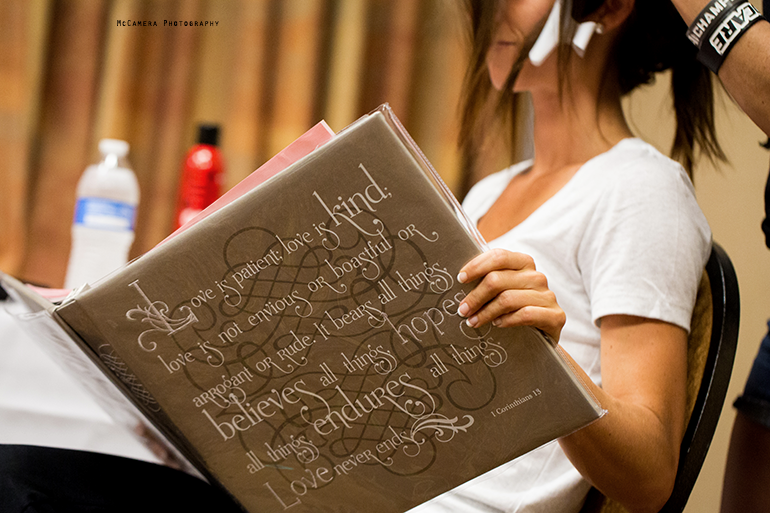 McCamera Photography
CHAMP
EARE
Love is patient; love is kind;
love is not envious or boastful or
arrogant or rude. It bears all things
believes all things hopes
all things endures all things
Love never ends
1 Corinthians 13